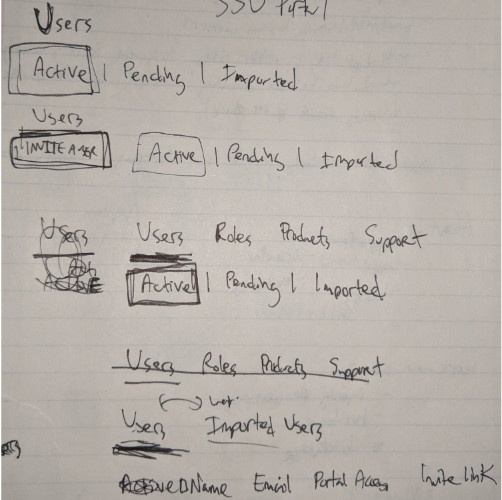 SSO Portal
Users
Active | Pending | Imported
Users
INVITE A USER Active | Pending | Imported
Users Users Roles Products Support
Active | Pending | Imported
Users Roles Products Support
Users Imported Users
Name Email Portal Access Invite Link